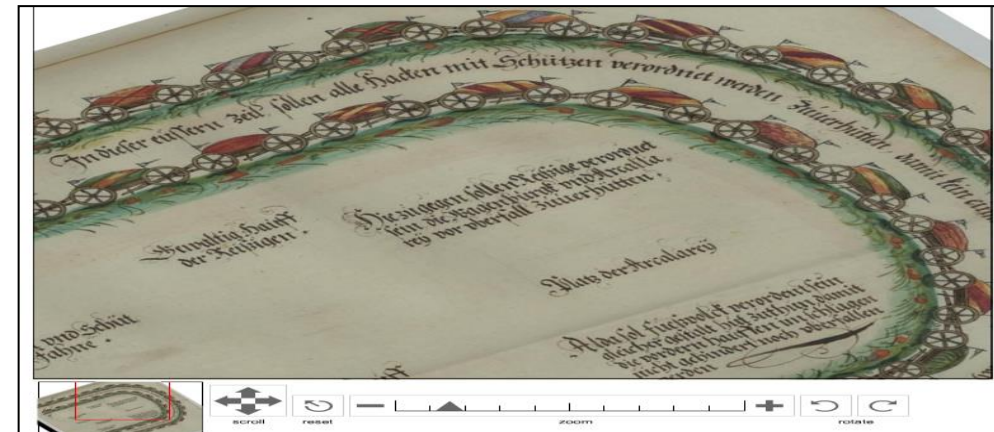 In dieser eüssern Zeil sollen alle Hacken mit Schützen verordnet werden Zuuerhütten, damit kein
Gewaltig Hauff
der Reisigen.
Hie zugegen sollen Reisige verordnet
sein die wagenburg vnd Arcallia
rey vor vberfall Zuuerhütten.
Platz der Arcalarey
vnd Schüt
fahne.
Alda sol fuesuolck verordent sein
gleicher gestalt hilf Zuthun, damit
die vordern hauffen im schlahen
nicht gehindert noch vberfallen
werden
scroll
reset
zoom
rotate